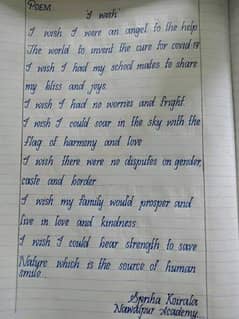 POEM:
'I wish'
I wish I were an angel to the help
The world to invent the cure for covid 19
I wish I had my school mates to share
my bliss and joys.
I wish I had no worries and fright
I wish I could soar in the sky with the
flag of harmony and love
I wish there were no disputes on gender,
caste and border
I wish my family would prosper and
live in love and kindness
I wish I could bear strength to save
Nature which is the source of human
smile...
Koirala
Nawalpur Academy